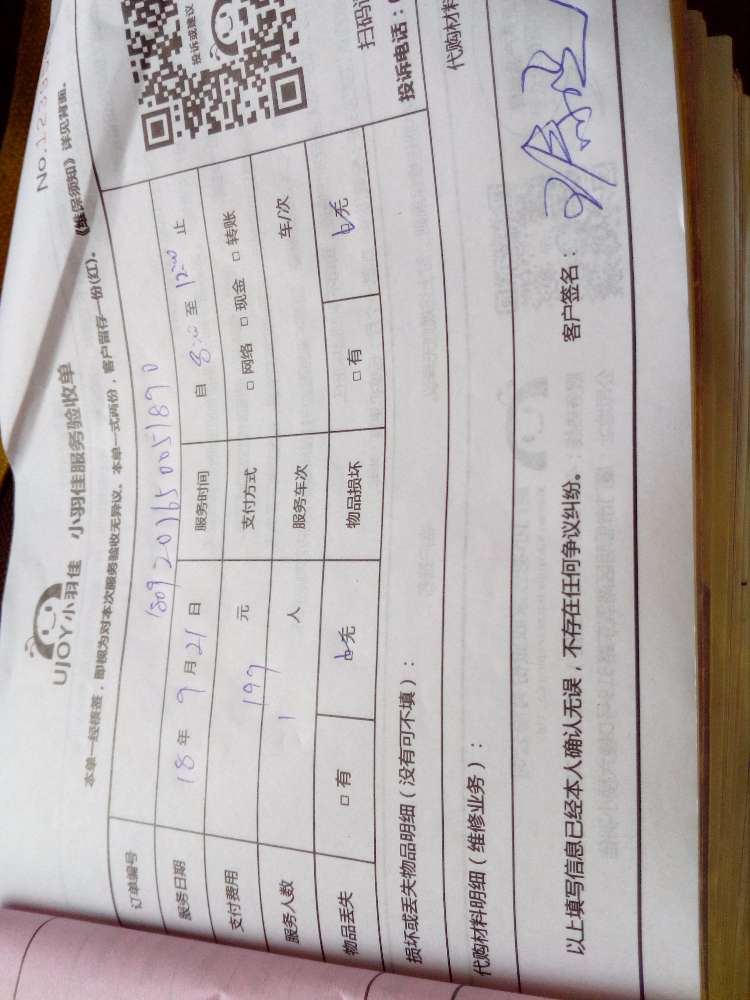 No.123
UJOY小羽佳 小羽佳服务验收单
本单一经核签，即视为对本次服务验收无异议。本单一式两份，客户留存一份(红)。《维保须知》详见背面。
订单编号 1809201650051890
服务日期 18年9月21日 服务时间 自8:00至12:00止
支付费用 199元 支付方式 □网络 □现金 □转账
服务人数 1人 服务车次 车/次
物品丢失 □有 □无 物品损坏 □有 □无
投诉或建议
扫码
投诉电话：
损坏或丢失物品明细（没有可不填）：
代购材料明细（维修业务）：
代购材料
以上填写信息已经本人确认无误，不存在任何争议纠纷。 客户签名：